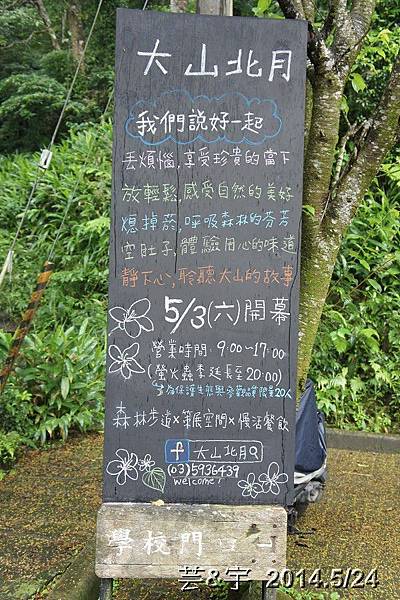 大山北月
我們說好一起
丟煩惱,享受珍貴的當下
放輕鬆,感受自然的美好
熄掉菸,呼吸森林的芬芳
空肚子,體驗用心的味道
靜下心,聆聽大山的故事
5/3(六)開幕
營業時間:9:00~17:00
(螢火蟲季延長至20:00)
森林步道×策展空間×慢活餐飲
f 大山北月
(03)5936439
welcome!
學校門
芸&宇 2014.5/24